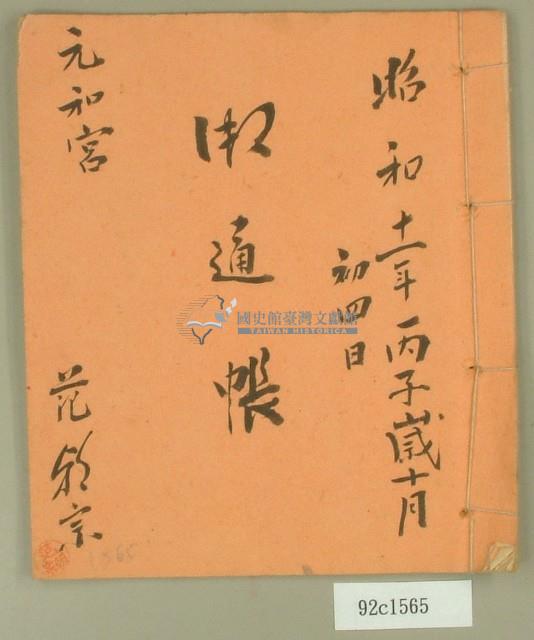 昭和十一年丙子歲十月
初四日
御通帳
元和宮
范朝宗
國史館臺灣文獻館
TAIWAN HISTORICA
1565
92c1565